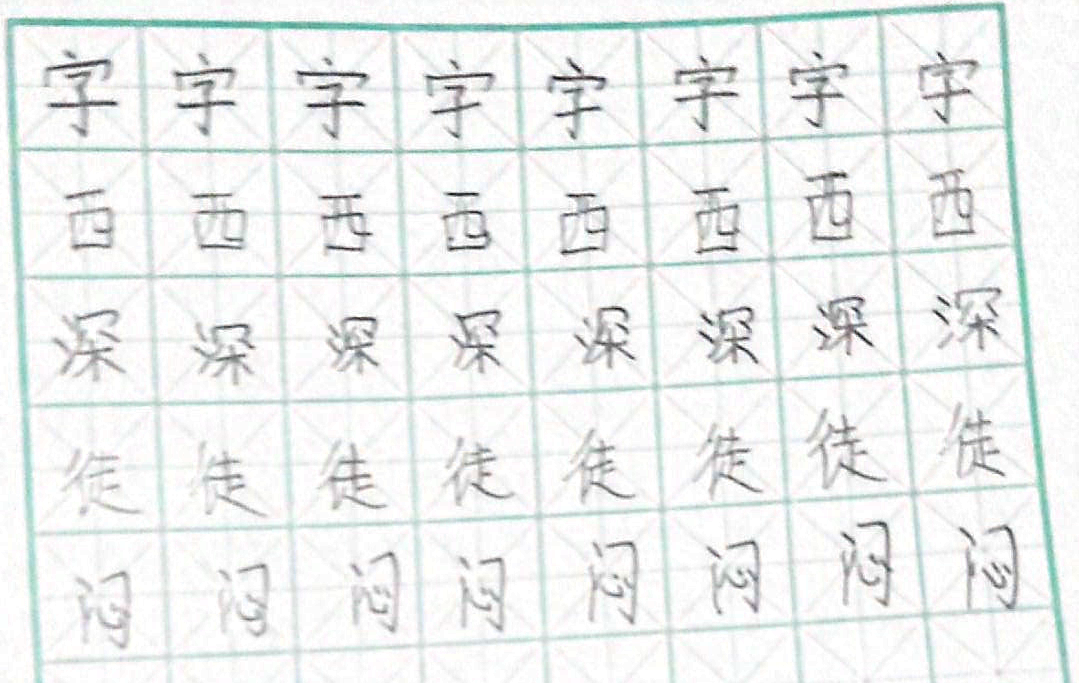 字字字字字字字字
西西西西西西西西
深深深深深深深深
徒徒徒徒徒徒徒徒
闷闷闷闷闷闷闷闷